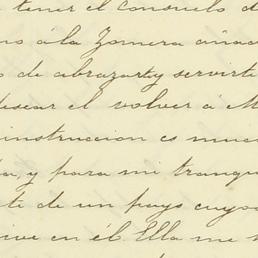 tener el consuelo d
no á la Zomera añad
o de abrazarte y servirte
desear el volver á M
instruccion es muc
da, y para mi tranqu
te de un pays cuyo
vive en él Ella me